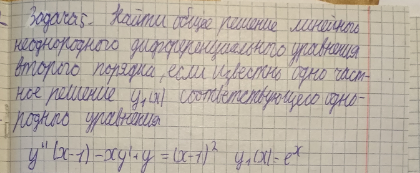 Задача 5. Найти общее решение линейного
неоднородного дифференциального уравнения
второго порядка, если известно одно част-
ное решение y₁(x) соответствующего одно-
родного уравнения
y''(x-1)-xy'+y=(x-1)² y₁(x)=eˣ